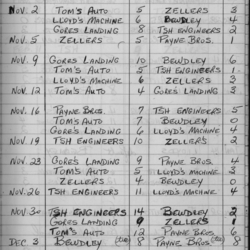 NOV. 2 TOM'S AUTO 5 ZELLERS 3
LLOYD'S MACHINE 6 BEWDLEY 4
GORES LANDING 8 TSH ENGINEERS 3
NOV. 5 ZELLERS 5 PAYNE BROS. 1
NOV. 9 GORES LANDING 10 BEWDLEY 6
TOM'S AUTO 5 TSH ENGINEERS 1
LLOYD'S MACHINE 6 ZELLERS 3
NOV. 12 TOM'S AUTO 4 GORE'S LANDING 3
NOV. 16 PAYNE BROS. 7 TSH ENGINEERS 5
TOM'S AUTO 7 BEWDLEY 0
GORE'S LANDING 6 LLOYD'S MACHINE 4
NOV. 19 TSH ENGINEERS 10 ZELLERS 2
NOV. 23 GORE'S LANDING 9 PAYNE BROS. 4
TOM'S AUTO 5 LLOYD'S MACHINE 3
ZELLERS 4 BEWDLEY 0
NOV. 26 TSH ENGINEERS 11 LLOYD'S MACHINE 4
NOV. 30 TSH ENGINEERS 14 BEWDLEY 2
GORES LANDING 9 ZELLERS
TOM'S AUTO 12 PAYNE BROS. 6
DEC. 3 BEWDLEY 8 PAYNE BROS.